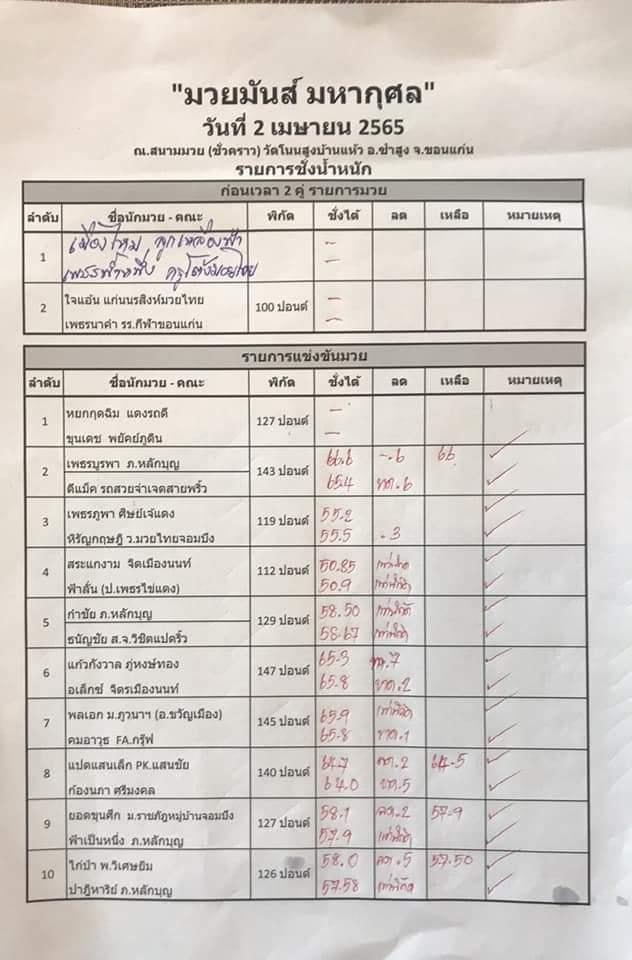 "มวยมันส์ มหากุศล"
วันที่ 2 เมษายน 2565
ณ.สนามมวย (ชั่วคราว) วัดโนนสูงบ้านแห้ว อ.ซำสูง จ.ขอนแก่น
รายการชั่งน้ำหนัก
ก่อนเวลา 2 คู่ รายการมวย
ลำดับ ชื่อนักมวย - คณะ พิกัด ชั่งได้ ลด เหลือ หมายเหตุ
เมืองไหม ลูกเหลืองฟ้า -
1
เพชรฟ้าหนึ่ง -
ใจแอ้น แก่นนรสิงห์มวยไทย -
2 100 ปอนด์
เพชรนาคำ รร.กีฬาขอนแก่น -
รายการแข่งขันมวย
ลำดับ ชื่อนักมวย - คณะ พิกัด ชั่งได้ ลด เหลือ หมายเหตุ
หยกกุดฉิม แดงรถดี -
1 127 ปอนด์
ขุนเดช พยัคย์ภูดิน -
เพชรบูรพา ภ.หลักบุญ 66.6 -.6 66
2 143 ปอนด์
ดีแม็ค รถสวยจ่าเจดสายพริ้ว 65.4 ขาด.6
เพชรภูพา ศิษย์เจ้แดง 55.2
3 119 ปอนด์
หิรัญกฤษฎิ์ ว.มวยไทยจอมบึง 55.5 .3
สระแกงาม จิตเมืองนนท์ 50.85 เท่าพิกัด
4 112 ปอนด์
ฟ้าลั่น (ป.เพชรไข่แดง) 50.9 เท่าพิกัด
กำชัย ภ.หลักบุญ 58.50 เท่าพิกัด
5 129 ปอนด์
ธนัญชัย ส.จ.วิชิตแปดริ้ว 58.67 เท่าพิกัด
แก้วกังวาล ภู่หงษ์ทอง 65.3 .7
6 147 ปอนด์
อเล็กซ์ จิตรเมืองนนท์ 65.8 ขาด.2
พลเอก ม.ภูวนาฯ (อ.ขวัญเมือง) 65.9 เท่าพิกัด
7 145 ปอนด์
คมอาวุธ FA.กรุ๊ฟ 65.8 ขาด.1
แปดแสนเล็ก PK.แสนชัย 64.7 ลด.2 64.5
8 140 ปอนด์
ก้องนภา ศรีมงคล 64.0 ขาด.5
ยอดขุนศึก ม.ราชภัฏหมู่บ้านจอมบึง 58.1 ลด.2 57.9
9 127 ปอนด์
ฟ้าเป็นหนึ่ง ภ.หลักบุญ 57.9 เท่าพิกัด
ไก่ป่า พ.วิเศษยิม 58.0 ลด.5 57.50
10 126 ปอนด์
ปาฏิหาริย์ ภ.หลักบุญ 57.58 เท่าพิกัด